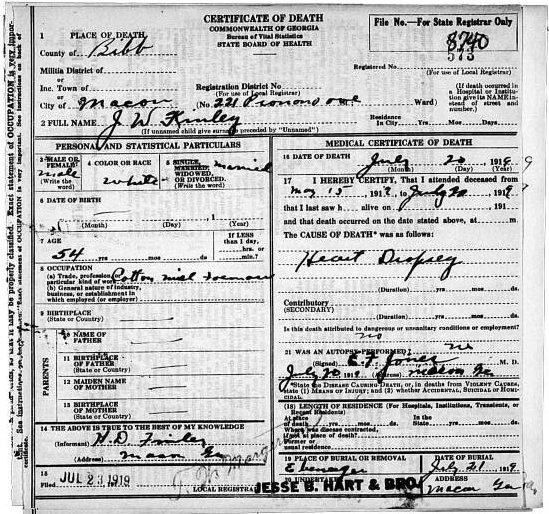 CERTIFICATE OF DEATH
COMMONWEALTH OF GEORGIA
Bureau of Vital Statistics
STATE BOARD OF HEALTH
File No.—For State Registrar Only
8740
573
1 PLACE OF DEATH
County of Bibb
Militia District of
or
Inc. Town of
or
City of Macon
Registration District No.
(For use of Local Registrar)
(No. 221
Ward)
Registered No.
(For use of Local Registrar)
(If death occurred in a Hospital or Institution give its NAME instead of street and number.)
2 FULL NAME J. W. Finley
(If unnamed child give surname preceded by "Unnamed")
Residence
In City Yrs. Mos. Days
PERSONAL AND STATISTICAL PARTICULARS
3 MALE OR FEMALE?
male
(Write the word)
4 COLOR OR RACE
white
5 SINGLE, MARRIED, WIDOWED, OR DIVORCED.
married
(Write the word)
6 DATE OF BIRTH
(Month) (Day) (Year)
7 AGE
54 yrs. mos. ds.
If LESS than 1 day,
hrs. or min.?
8 OCCUPATION
(a) Trade, profession, or particular kind of work
Cotton mill foreman
(b) General nature of industry, business, or establishment in which employed (or employer)
9 BIRTHPLACE
(State or Country)
PARENTS
10 NAME OF FATHER
11 BIRTHPLACE OF FATHER
(State or Country)
12 MAIDEN NAME OF MOTHER
13 BIRTHPLACE OF MOTHER
(State or Country)
14 THE ABOVE IS TRUE TO THE BEST OF MY KNOWLEDGE
(Informant) H. D. Finley
(Address) Macon Ga
15
JUL 23 1919
LOCAL REGISTRAR
MEDICAL CERTIFICATE OF DEATH
16 DATE OF DEATH July 20 1919
(Month) (Day) (Year)
17 I HEREBY CERTIFY, That I attended deceased from
May 15 1919 to July 20 1919
that I last saw h alive on 191
and that death occurred on the date stated above, at m.
The CAUSE OF DEATH* was as follows:
Heart Dropsey
(Duration) yrs. mos. ds.
Contributory
(SECONDARY)
(Duration) yrs. mos. ds.
Is this death attributed to dangerous or unsanitary conditions or employment?
no
21 WAS AN AUTOPSY PERFORMED? no
(Signed) E. F. Jones M. D.
July 20 1919 (Address) Macon Ga
*State the DISEASE CAUSING DEATH, or, in deaths from VIOLENT CAUSES, state (1) MEANS OF INJURY; and (2) whether ACCIDENTAL, SUICIDAL or HOMICIDAL.
(18) LENGTH OF RESIDENCE (For Hospitals, Institutions, Transients, or Recent Residents)
Where was disease contracted, if not at place of death?
Former or usual residence
19 PLACE OF BURIAL OR REMOVAL
DATE OF BURIAL
July 21 1919
20 UNDERTAKER
JESSE B. HART & BRO.
ADDRESS
Macon Ga